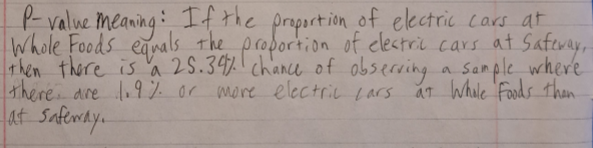 P-value meaning: If the proportion of electric cars at
Whole Foods equals the proportion of electric cars at Safeway,
then there is a 25.34% chance of observing a sample where
there are 1.9% or more electric cars at Whole Foods than
at Safeway.